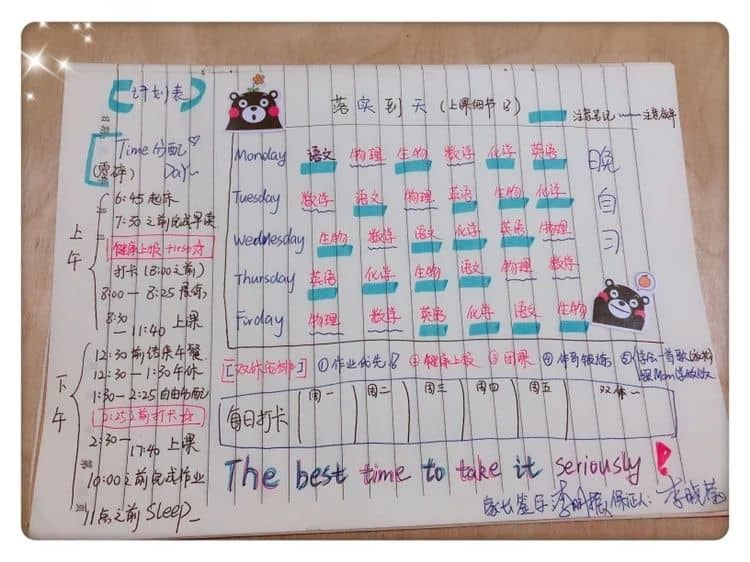 计划表
Time分配
(零碎) Day~
上午
6:45起床
7:30之前完成早读
健康上报 first☆
打卡(8:00之前)
8:00—8:25
8:30
—11:40 上课
下午
12:30前结束午餐
12:30—1:30午休
1:30—2:25自由分配
2:25之前打卡☆
2:30—
17:40 上课
10:00之前完成作业
11点之前Sleep_
落实到天(上课细节)
注意笔记
Monday 语文 物理 生物 数学 化学 英语
Tuesday 数学 语文 物理 英语 生物 化学
Wednesday 生物 数学 语文 化学 英语 物理
Thursday 英语 化学 生物 语文 物理 数学
Firday 物理 数学 英语 化学 语文 生物
晚自习
[双休安排] ①作业优先 ②健康上报 ③网课 ④体育锻炼 ⑤
每日打卡 周一 周二 周三 周四 周五 双休~
The best time to take it seriously!
家长签字: 保证人: